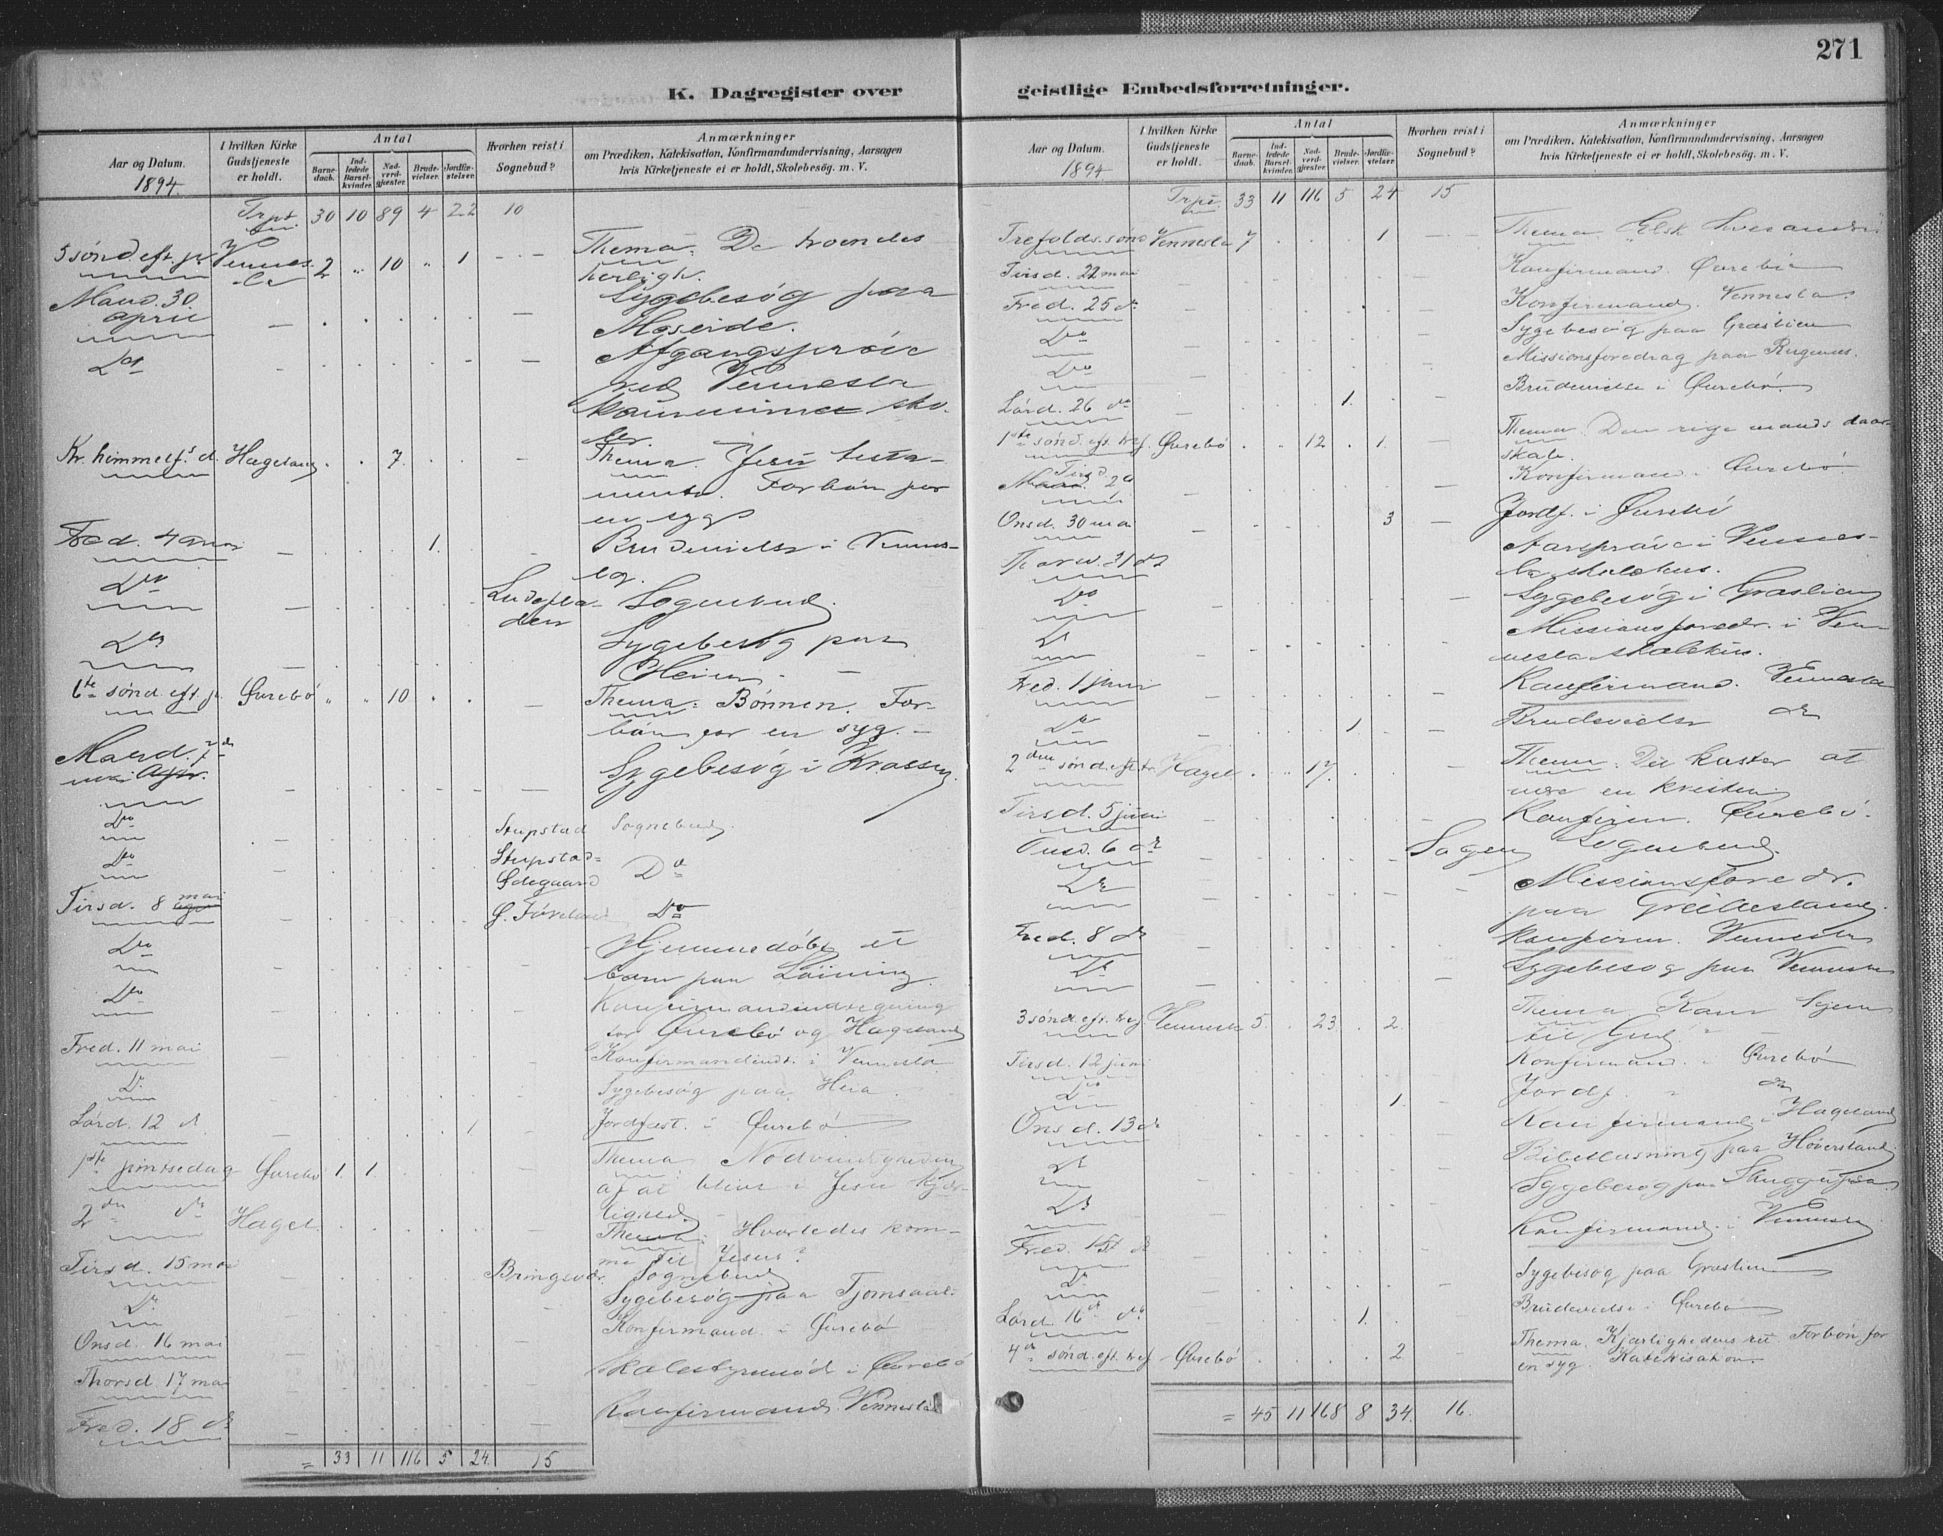 271
K. Dagregister over
geistlige Embedsforretninger.
Aar og Datum.
1894.
I hvilken Kirke Gudstjeneste er holdt.
Antal
Barnedaab.
Indledede Barselkvinder.
Nadverdgjester.
Brudevielser.
Jordfæstelser.
Hvorhen reist i Sognebud?
Anmærkninger
om Prædiken, Katekisation, Konfirmandundervisning, Aarsagen
hvis Kirketjeneste ei er holdt, Skolebesøg. m. V.
Trpt. 30 10 89 4 22 10
5 sønd. eft. p. Vennes- 2 " 10 " 1 - Thema: De troendes
la herligh.
Mand. 30 Sygebesøg paa
april Moseide.
Do Afgangsprøve
ved Vennesla
kommunes sko-
ler.
Kr. himmelf.s d. Hægeland 7. Thema. Jesu testa-
mente. Forbøn for
en syg
Fred. 4 mai 1. Brudevielse i Vennes-
la.
Do Sognebud.
Do Sygebesøg paa
Heiem.
6te sønd. eft. p. Øurebø " " 10 Thema: Bønnen. For-
bøn for en syg.
Mand. 7de
mai Sygebesøg i
Do Stupstad Sognebud.
Do Stupstad-
Ødegaard Do
Tirsd. 8 mai Do
Do Hjemmedøbt et
barn paa
Do Konfirmandindtegning
for Øurebø og Hægeland
Fred. 11 mai Konfirmandindt. i Vennesla
Do Sygebesøg paa Heia.
Lørd. 12 d 1 Jordfæst. i Øurebø
1ste pintsedag Øurebø 1 1 Thema Nødvendigheden
af at blive i Jesu Kjær-
lighed.
2den do Hægel. Thema: Hvorledes kom-
me til Jesus?
Tirsd. 15 mai Sognebud
Do Sygebesøg paa
Onsd. 16 mai Konfirmand. i Øurebø
Thorsd. 17 mai Skolestyremød i Øurebø
Fred. 18 do Konfirmand. Vennesla
= 33 11 116 5 24 15
Aar og Datum.
1894
I hvilken Kirke Gudstjeneste er holdt.
Antal
Barnedaab.
Indledede Barselkvinder.
Nadverdgjester.
Brudevielser.
Jordfæstelser.
Hvorhen reist i Sognebud?
Anmærkninger
om Prædiken, Katekisation, Konfirmandundervisning, Aarsagen
hvis Kirketjeneste ei er holdt, Skolebesøg. m. V.
Trpt. 33 11 116 5 24 15
Trefolds. sønd Vennesla 7 1 Thema "Elsk hverandre"
Tirsd. 22 mai Konfirmand. Øurebø
Fred. 25 d Konfirmand. Vennesla.
Do Sygebesøg paa Graslien
Do Missionsforedrag paa
Lørd. 26 do 1. Brudevielse i Øurebø
1ste sønd. eft. tref. Øurebø 12 1. Thema: Den rige mands daar-
skab.
Tirsd 29 Konfirmand. i Øurebø
mai
Onsd. 30 mai 3 Jordf. i Øurebø
Thorsd. 31 do Aarsprøve i Vennes-
la skolehus.
Do Sygebesøg i Graslien
Do Missionsforedr. i Ven-
nesla skolehus.
Fred. 1 juni Konfirmand. Vennesla
Do 1 Brudevielse do
2den sønd. eft. tr. Hægel. 17 Thema: Det koster at
være en kristen
Tirsd. 5 juni Konfirm. Øurebø.
Onsd. 6 do Sognebud.
Do Missionsforedr.
paa
Fred. 8 do Konfirm. Vennesla
Do Sygebesøg paa Vennesla
3 sønd. eft. tref. Vennesla 5. 23. 2. Thema Kom hjem
til Gud.
Tirsd. 12 juni Konfirmand. i Øurebø
Do 1. Jordf. " do
Onsd. 13 do Konfirmand i Hægeland
Do Bibellæsning paa
Do Sygebesøg paa
Fred. 15 do Konfirmand. i Vennesla
Do Sygebesøg paa Graslien
Lørd. 16de do 1. Brudevielse i Øurebø
4de sønd. eft. tref. Øurebø 2 Thema. Kjærlighedens ret. Forbøn for
en syg. Katekisation.
= 45 11 168 8 34. 16.